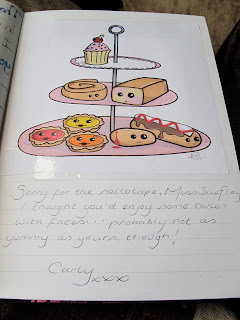 Sorry for the sellotape, Miss Sue Flay
I thought you'd enjoy some cakes
with faces... probably not as
yummy as yours though!
Carly xxx